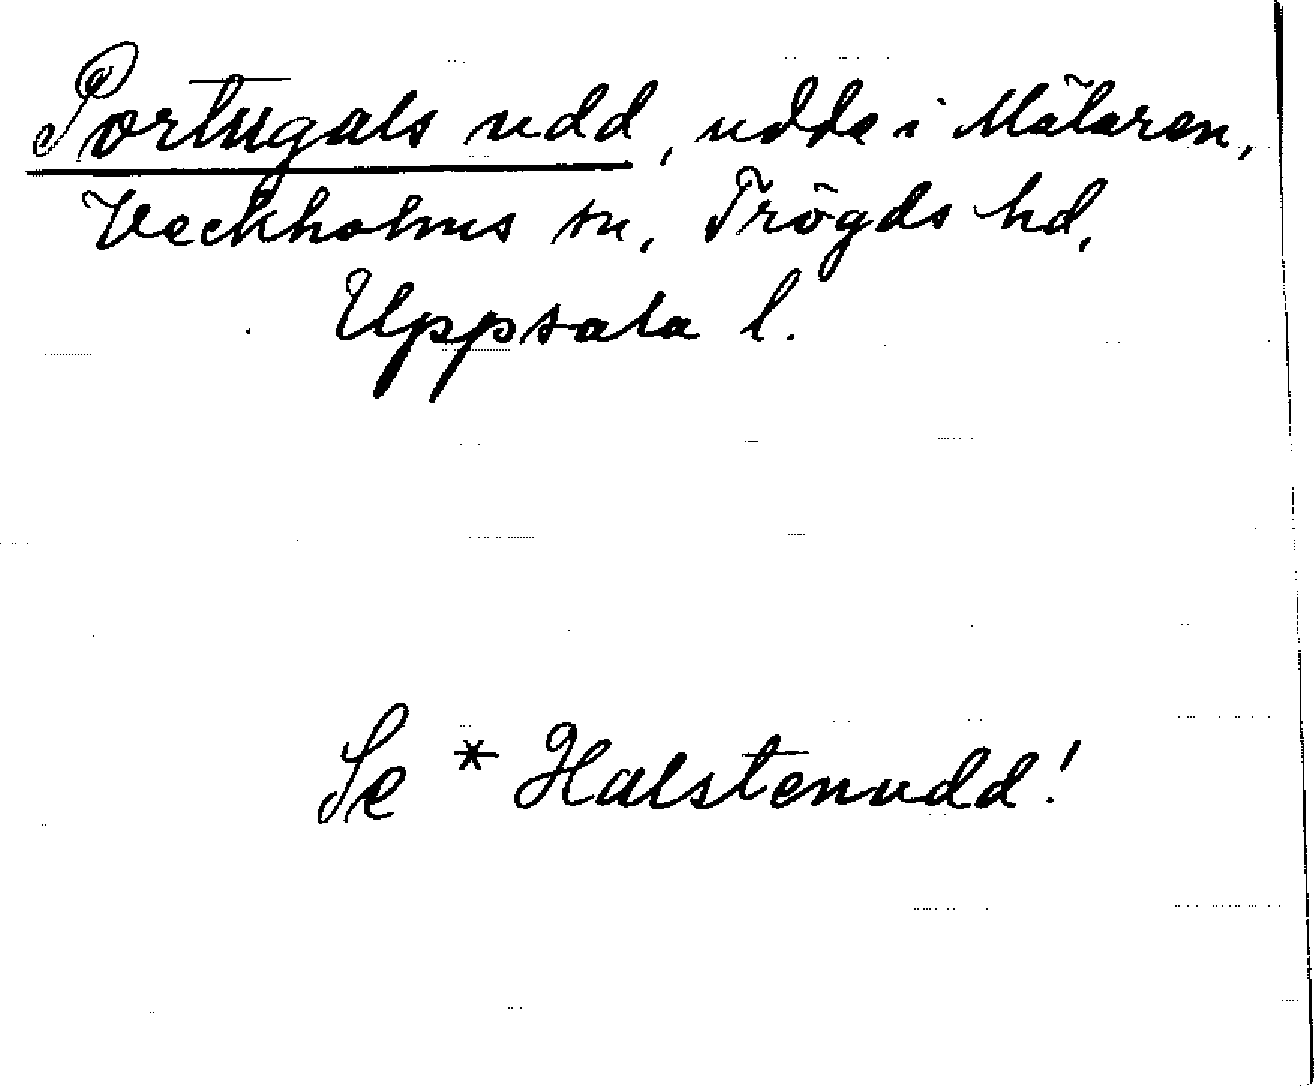 Portugals udd, udde i Mälaren,
Veckholms sn, Trögds hd,
Uppsala l.
Se * Halstenudd!